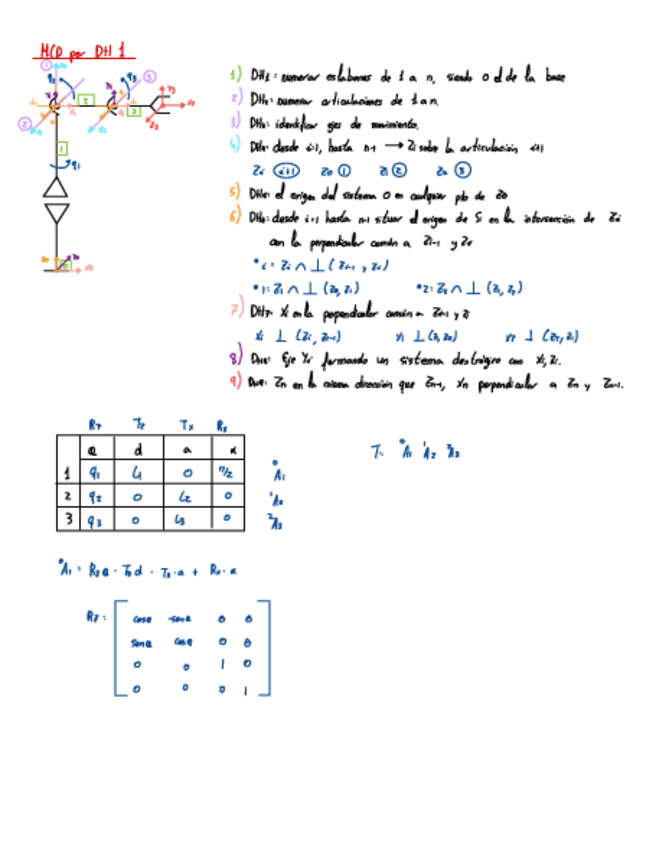 MCD por DH 1
1) DH1: numerar eslabones de 1 a n, siendo 0 el de la base
2) DH2: numerar articulaciones de 1 a n.
3) DH3: identificar ejes de movimiento.
4) DH4: desde i=1, hasta n-1 → Zi sobre la articulación i+1
Zi (i+1) Z0 ① Z1 ② Z2 ③
5) DH5: el origen del sistema 0 en cualquier pto de Z0
6) DH6: desde i=1 hasta n-1 situar el origen de Si en la intersección de Zi
con la perpendicular común a Zi-1 y Zi
• i: Zi ∩ ⊥ (Zi-1, Zi)
• 1: Z1 ∩ ⊥ (Z0, Z1) • 2: Z2 ∩ ⊥ (Z1, Z2)
7) DH7: Xi en la perpendicular común a Zi-1 y Zi
Xi ⊥ (Zi, Zi-1) X1 ⊥ (Z1, Z0) X2 ⊥ (Z2, Z1)
8) DH8: Eje Yi formando un sistema dextrógiro con Xi, Zi.
9) DH9: Zn en la misma dirección que Zn-1, Xn perpendicular a Zn y Zn-1.
Rz Tz Tx Rx
θ d a α
1 q1 L1 0 π/2 ⁰A1
2 q2 0 L2 0 ¹A2
3 q3 0 L3 0 ²A3
T: ⁰A1 ¹A2 ²A3
⁰A1 = Rzθ · Tzd · Tx·a + Rx·α
Rz = cosθ -senθ 0 0
senθ cosθ 0 0
0 0 1 0
0 0 0 1